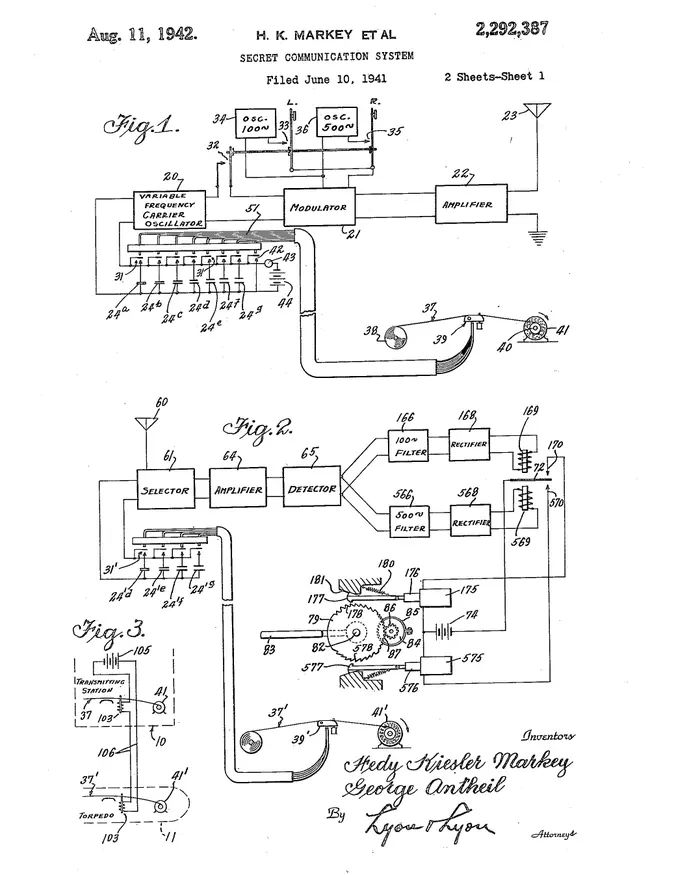 Aug. 11, 1942.
H. K. MARKEY ET AL
2,292,387
SECRET COMMUNICATION SYSTEM
Filed June 10, 1941
2 Sheets-Sheet 1
Fig.1.
34
OSC.
100~
L.
33
36
OSC.
500~
R.
35
23
32
20
VARIABLE
FREQUENCY
CARRIER
OSCILLATOR
51
MODULATOR
21
22
AMPLIFIER
31
31
42
43
44
24a
24b
24c
24d
24e
24f
24g
37
38
39
40
41
60
Fig.2.
61
SELECTOR
64
AMPLIFIER
65
DETECTOR
166
100~
FILTER
168
RECTIFIER
169
170
72
566
500~
FILTER
568
RECTIFIER
569
570
31'
24'd
24'e
24'f
24'g
181
180
177
176
175
79
178
86
85
74
83
82
578
87
84
577
576
575
Fig.3.
105
TRANSMITTING
STATION
41
37
103
10
106
37'
41'
TORPEDO
103
11
37'
39'
41'
Inventors
Hedy Kiesler Markey
George Antheil
By
Lyon & Lyon
Attorneys